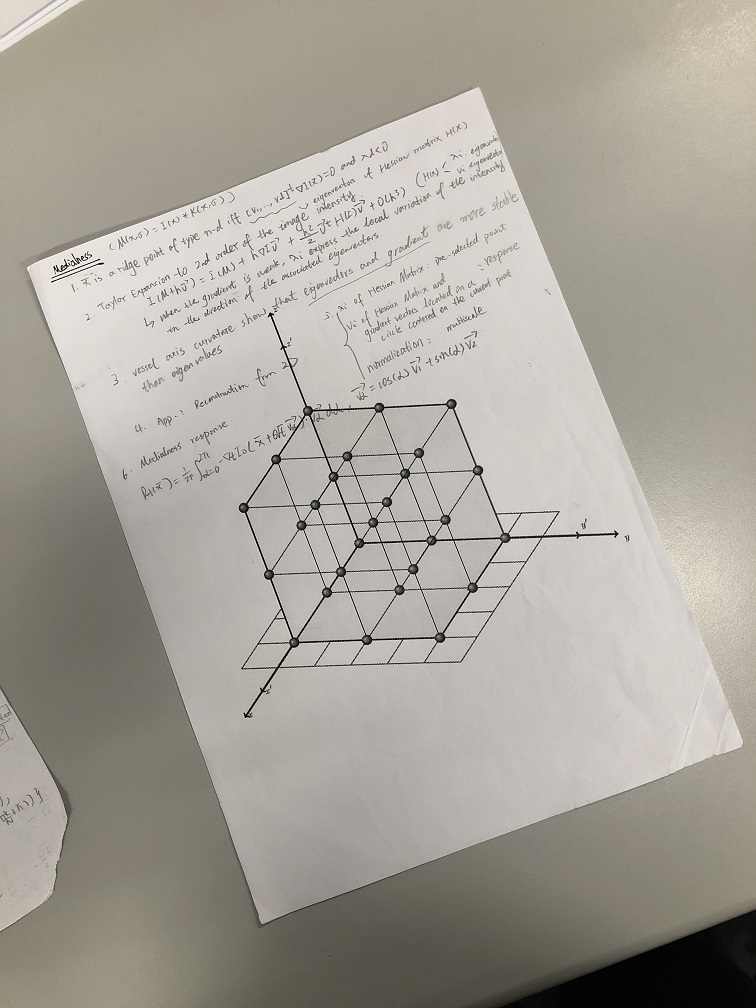 Medialness (M(x,σ) = I(x) * K(x,σ))
1. x⃗ is a ridge point of type n-d iff [v₁, ..., vd]ᵗ ∇I(x⃗)=0 and λd<0
eigenvectors of Hessian matrix H(x)
2. Taylor Expansion to 2nd order of the image intensity
I(M+hv⃗) = I(M) + h∇I v⃗ + h²/2 v⃗ᵗ H(I) v⃗ + O(h³) (H(x) λi. eigenvalue
vi eigenvector
↳ when the gradient is weak, λi express the local variation of the intensity
in the direction of the associated eigenvectors
3. vessel axis curvature show that eigenvectors and gradient are more stable
than eigenvalues
5. λi of Hessian Matrix: pre-selected point
Vi of Hessian Matrix and
gradient vectors located on a : response
circle centered on the current point
normalization : multiscale
4. App.: Reconstruction from 2D
6. Medialness response
vα⃗ = cos(α) V₁⃗ + sin(α) V₂⃗
z
z'
y'
y
x'
x